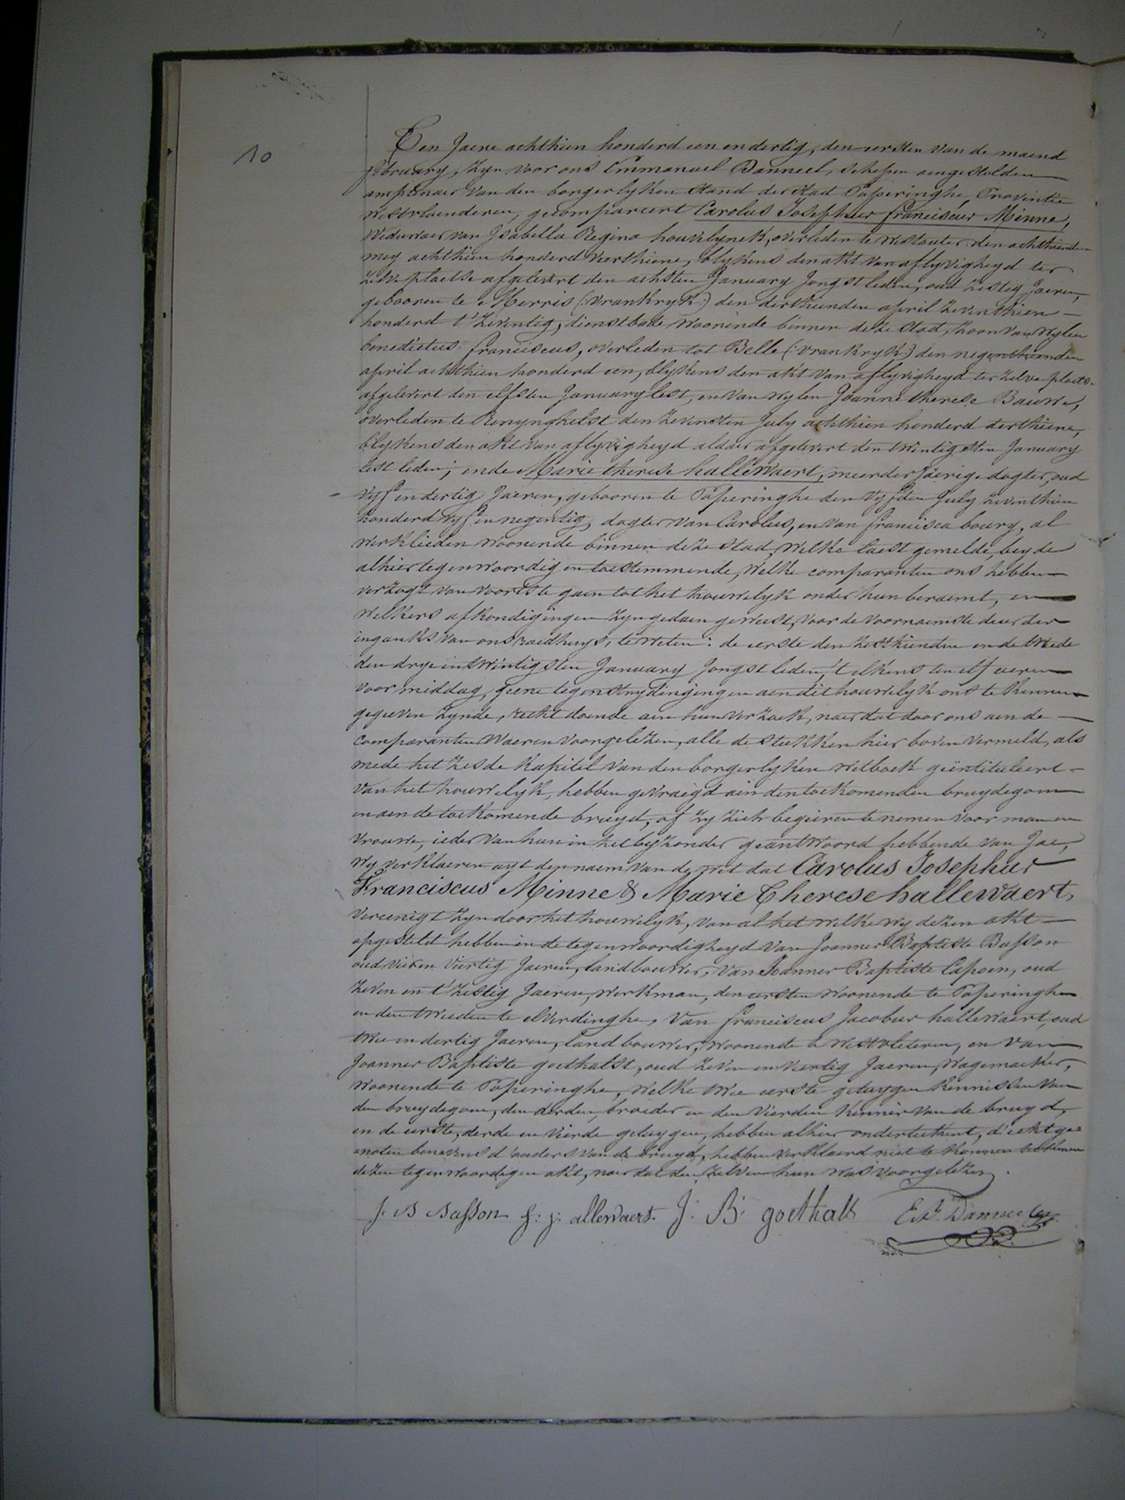 10
Ten Jaere achthien honderd een en dertig, den eersten van de maend
february, zyn voor ons Emmanuel Danneel, schepen aengestelden
amptenaer van den borgerlyken stand der stad Poperinghe, Provintie
westvlaenderen, gecompareert Carolus Josephus franciscus Minne,
weduwaer van Isabella Regina houvelynck, overleden te westouter den achthienden
mey achthien honderd veerthiene, blykens den akt van aflyvigheyd ter
zelve plaetse afgelevert den achsten January Jongstleden, oud zestig Jaeren,
gebooren te Merris (vrankryk) den derthienden april zeventhien
honderd t'zeventig, dienstbode woonende binnen deze stad, zoon van wylen
benedictus franciscus, overleden tot Belle (vrankryk) den negenthienden
april achthien honderd een, blykens den akt van aflyvigheyd ter zelve plaets
afgelevert den elfsten January lest, en van wylen Joanne therese Bauwe,
overleden te Renynghelst den zevensten July achthien honderd derthiene,
blykens den akt van aflyvigheyd aldaer afgelevert den twintigsten January
lest leden; ende Marie therese hallewaert, meerderjaerige dogter, oud
vyf en dertig Jaeren, gebooren te Poperinghe den vyfsten July zeventhien
honderd vyf en negentig, dogter van Carolus, en van francisca boury, al
werklieden woonende binnen deze stad, welke laest gemelde, beyde
alhier tegenwoordig en toestemmende, welke comparanten ons hebben
verzogt van voorts te gaen tot het houwelyk onder hun beraemt, en
welkers afkondigingen zyn gedaen geweest, voor de voornaemste deur der
ingank van ons raedhuys, te weten: de eerste den zesthienden en de tweede
den dry en twintigsten January Jongstleden, t'elkens ten elf ueren
voormiddag, geene tegenstrydingen aen dit houwelyk ons te kennen
gegeven zynde, recht doende aen hun verzoek, naer dat door ons aen de
comparanten waeren voorgelezen, alle de stukken hier boven vermeld, als
mede het zesde kapitel van den borgerlyken wetboek geintituleert
van het houwelyk, hebben gevraegd aen den toekomenden bruydegom
en aen de toekomende bruyd, of zy zich begeeren te nemen voor man en
vrouwe, ieder van hun in het byzonder geantwoord hebbende van Jae,
wy verklaeren uyt den naem van de wet dat Carolus Josephus
Franciscus Minne & Marie Therese hallewaert,
vereenigt zyn door het houwelyk, van al het welke wy dezen akt
opgesteld hebben in de tegenwoordigheyd van Joannes Baptiste Basson
oud vier en viertig Jaeren, landbouwer, van Joannes Baptiste Capoen, oud
zeven en t'zestig Jaeren, werkman, den eersten woonende te Poperinghe
en den tweeden te elverdinghe, van franciscus Jacobus hallewaert, oud
twee en dertig Jaeren, landbouwer, woonende te westvleteren, en van
Joannes Baptiste goethals, oud zeven en viertig Jaeren, wagemaeker,
woonende te Poperinghe, welke twee eerste getuygen kennissen van
den bruydegom, den derden broeder en den vierden kennis van de bruyd,
en de eerste, derde en vierde getuygen, hebben alhier onderteekent, d'echtge-
nooten benevens d'ouders van de bruyd, hebben verklaerd niet te konnen teekenen
dezen tegenwoordigen akt, naer dat den zelven hun was voorgelezen.
J. B Basson f: j: allewaert J. B. goethals Em. Danneel